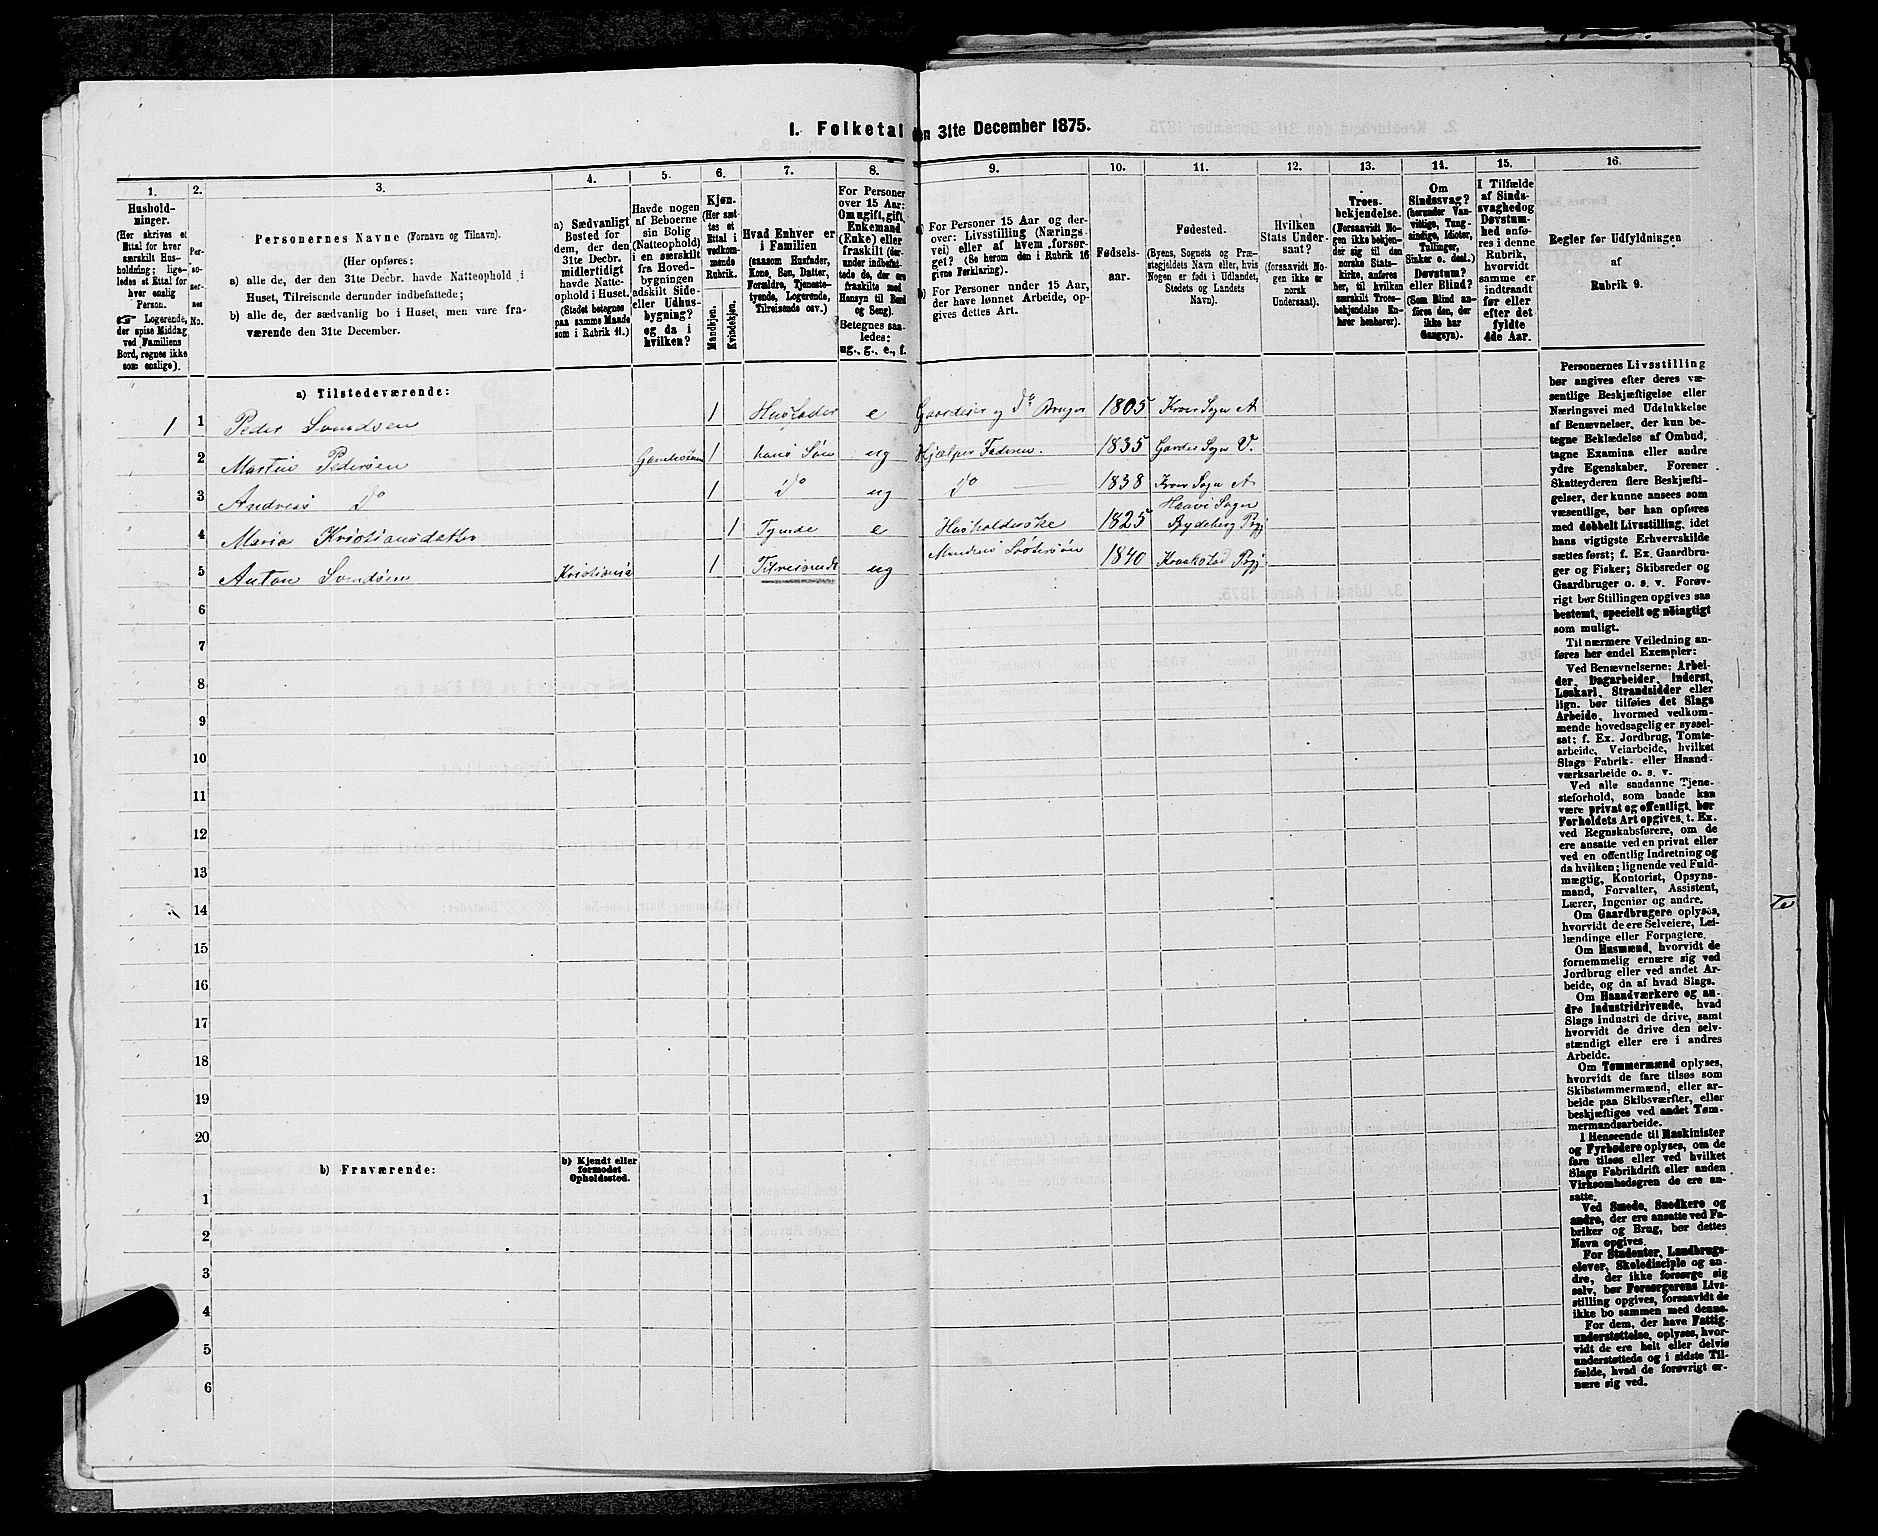 1. Folketal den 31te December 1875.
1.
2.
3.
4.
5.
6.
7.
8.
9.
10.
11.
12.
13.
14.
15.
16.
Hushold-
ninger.
(Her skrives et
Ettal for hver
særskilt Hus-
holdning; lige-
ledes et Ettal for
hver enslig
Person.
Logerende,
der spise Middag
ved Familiens
Bord, regnes ikke
som enslige).
Per-
so-
ner-
nes
No.
Personernes Navne (Fornavn og Tilnavn).
(Her opføres:
a) alle de, der den 31te Decbr. havde Natteophold i
Huset, Tilreisende derunder indbefattede;
b) alle de, der sædvanlig bo i Huset, men vare fra-
værende den 31te December.
a) Sædvanligt
Bosted for
dem, der den
31te Decbr.
midlertidigt
havde Natte-
ophold i Huset.
(Stedet betegnes
paa samme Maade
som i Rubrik 11.)
Havde nogen
af Beboerne
sin Bolig
(Natteophold)
i en særskilt
fra Hoved-
bygningen
adskilt Side-
eller Udhus-
bygning?
og da i
hvilken?
Kjøn.
(Her sæt-
tes et
Ettal i
vedkom-
mende
Rubrik.
Mandkjøn.
Kvindekjøn.
Hvad Enhver er
i Familien
(saasom Husfader,
Kone, Søn, Datter,
Forældre, Tjeneste-
tyende, Logerende,
Tilreisende osv.)
For Personer
over 15 Aar:
Om ugift, gift,
Enkemand
(Enke) eller
fraskilt (der-
under indbefat-
tede de, der ere
fraskilte med
Hensyn til Bord
og Seng).
Betegnes saa-
ledes:
ug., g., e., f.
a) For Personer 15 Aar og der-
over: Livsstilling (Nærings-
vei) eller af hvem forsør-
get? (Se herom den i Rubrik 16
givne Forklaring).
b) For Personer under 15 Aar,
der have lønnet Arbeide, op-
gives dettes Art.
Fødsels-
aar.
Fødested.
(Byens, Sognets og Præ-
stegjeldets Navn eller, hvis
Nogen er født i Udlandet,
Stedets og Landets
Navn).
Hvilken
Stats Under-
saat?
(forsaavidt No-
gen ikke er
norsk
Undersaat).
Troes-
bekjendelse.
(Forsaavidt No-
gen ikke bekjen-
der sig til den
norske Stats-
kirke, anføres
her, til hvilken
særskilt Troes-
bekjendelse En-
hver henhører).
Om
Sindssvag?
(herunder Van-
vittige, Tung-
sindige, Idioter,
Tullinger,
Sinker o. desl.)
Døvstum?
eller Blind?
(Som Blind an-
føres den, der
ikke har
Gangsyn).
I Tilfælde
af Sinds-
svaghed og
Døvstum-
hed anfø-
res i denne
Rubrik,
hvorvidt
samme er
indtraadt
før eller
efter det
fyldte
4de Aar.
Regler før Udfyldningen
af
Rubrik 9.
a) Tilstedeværende:
1 1 Peder Svendsen 1 Husfader e Gaardeier og Do Bruger 1805 Kroer Sogn A
2 Martin Pedersen 1 hans Søn ug Hjælper Faderen. 1835 Garder Sogn V.
3 Andreas Do 1 Do ug Do 1838 Kroer Sogn A
4 Maria Kristiansdatter 1 Tyende e Husholderske 1825 Haavi Sogn
5 Anton Svendsen Kristiania 1 Tilreisende ug 1840 Kraakstad Prgj
6
7
8
9
10
11
12
13
14
15
16
17
18
19
20
b) Fraværende:
b) Kjendt eller
formodet
Opholdssted.
1
2
3
4
5
6
Personernes Livsstilling
bør angives efter deres væ-
sentlige Beskjæftigelse eller
Næringsvei med Udelukkelse
af Benævnelser, der kun be-
tegne Beklædelse af Ombud,
tagne Examina eller andre
ydre Egenskaber. Forener
Skatteyderen flere Beskjæfti-
gelser, der kunne ansees som
væsentlige, bør han opføres
med dobbelt Livsstilling, idet
hans vigtigste Erhvervskilde
sættes først; f. Ex. Gaardbru-
ger og Fisker; Skibsreder og
Gaardbruger o. s. v. Forøv-
rigt bør Stillingen opgives saa
bestemt, specielt og nøiagtigt
som muligt.
Til nærmere Veiledning an-
føres her endel Exempler:
Ved Benævnelserne: Arbei-
der, Dagarbeider, Inderst,
Løskarl, Strandsidder eller
lign. bør tilføies det Slags
Arbeide, hvormed vedkom-
mende hovedsagelig er syssel-
sat; f. Ex. Jordbrug, Tomte-
arbeide, Veiarbeide, hvilket
Slags Fabrik- eller Haand-
værksarbeide o. s. v.
Ved alle saadanne Tjene-
steforhold, som baade kan
være privat og offentligt, bør
Forholdets Art opgives, t. Ex.
ved Regnskabsførere, om de
ere ansatte ved en privat eller
ved en offentlig Indretning og
da hvilken; lignende ved Fuld-
mægtig, Kontorist, Opsyns-
mand, Forvalter, Assistent,
Lærer, Ingeniør og andre.
Om Gaardbrugere oplyses,
hvorvidt de ere Selveiere, Lei-
lændinge eller Forpagtere.
Om Husmænd, hvorvidt de
fornemmelig ernære sig ved
Jordbrug eller ved andet Ar-
beide, og da af hvad Slags.
Om Haandværkere og an-
dre Industridrivende, hvad
Slags Industri de drive, samt
hvorvidt de drive den selv-
stændigt eller ere i andres
Arbeide.
Om Tømmermænd oplyses,
hvorvidt de fare tilsøs som
Skibstømmermænd, eller ar-
beide paa Skibsværfter, eller
beskjæftiges ved andet Tøm-
mermandsarbeide.
I Henseende til Maskinister
og Fyrbødere oplyses, om de
fare tilsøs eller ved hvilket
Slags Fabrikdrift eller anden
Virksomhedsgren de ere an-
satte.
Ved Smede, Snedkere og
andre, der ere ansatte ved Fa-
briker og Brug, bør dettes
Navn opgives.
For Studenter, Landbrugs-
elever, Skoledisciple og an-
dre, der ikke forsørge sig
selv, bør Forsørgerens Livs-
stilling opgives, forsaavidt de
ikke bo sammen med denne.
For dem, der have Fattig-
understøttelse, oplyses, hvor-
vidt de ere helt eller delvis
understøttede og i sidste Til-
fælde, hvad de forøvrigt er-
nære sig ved.